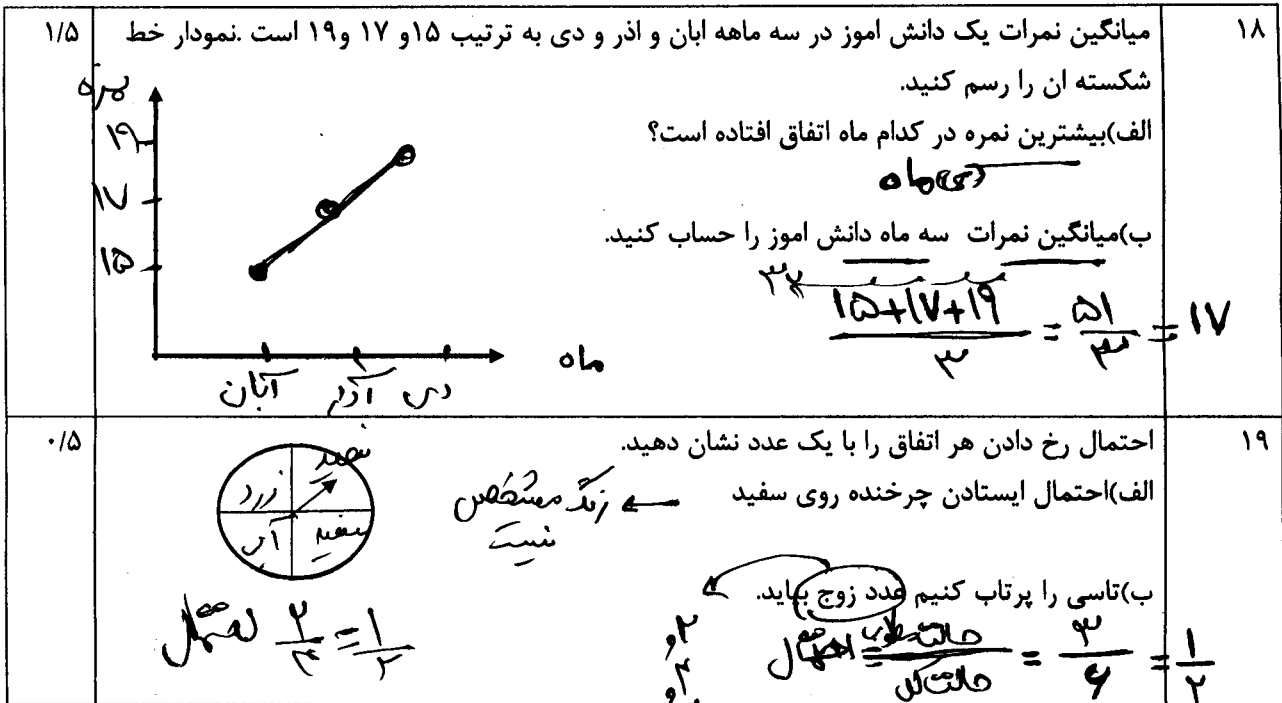 ۱۸
میانگین نمرات یک دانش اموز در سه ماهه ابان و اذر و دی به ترتیب ۱۵و ۱۷ و۱۹ است .نمودار خط
۱/۵
شکسته ان را رسم کنید.
نمره
الف)بیشترین نمره در کدام ماه اتفاق افتاده است؟
۱۹
دی ماه
۱۷
ب)میانگین نمرات سه ماه دانش اموز را حساب کنید.
۱۵
۱۵+۱۷+۱۹ / ۳ = ۵۱ / ۳ = ۱۷
ماه
آبان آذر دی
۱۹
احتمال رخ دادن هر اتفاق را با یک عدد نشان دهید.
۰/۵
الف)احتمال ایستادن چرخنده روی سفید
رنگ مشخص
نیست
زرد سفید
آبی سفید
ب)تاسی را پرتاب کنیم عدد زوج بیاید.
احتمال = حالت مطلوب / حالت کل = ۳ / ۶ = ۱ / ۲
۲و
۴و
احتمال ۲ / ۴ = ۱ / ۲